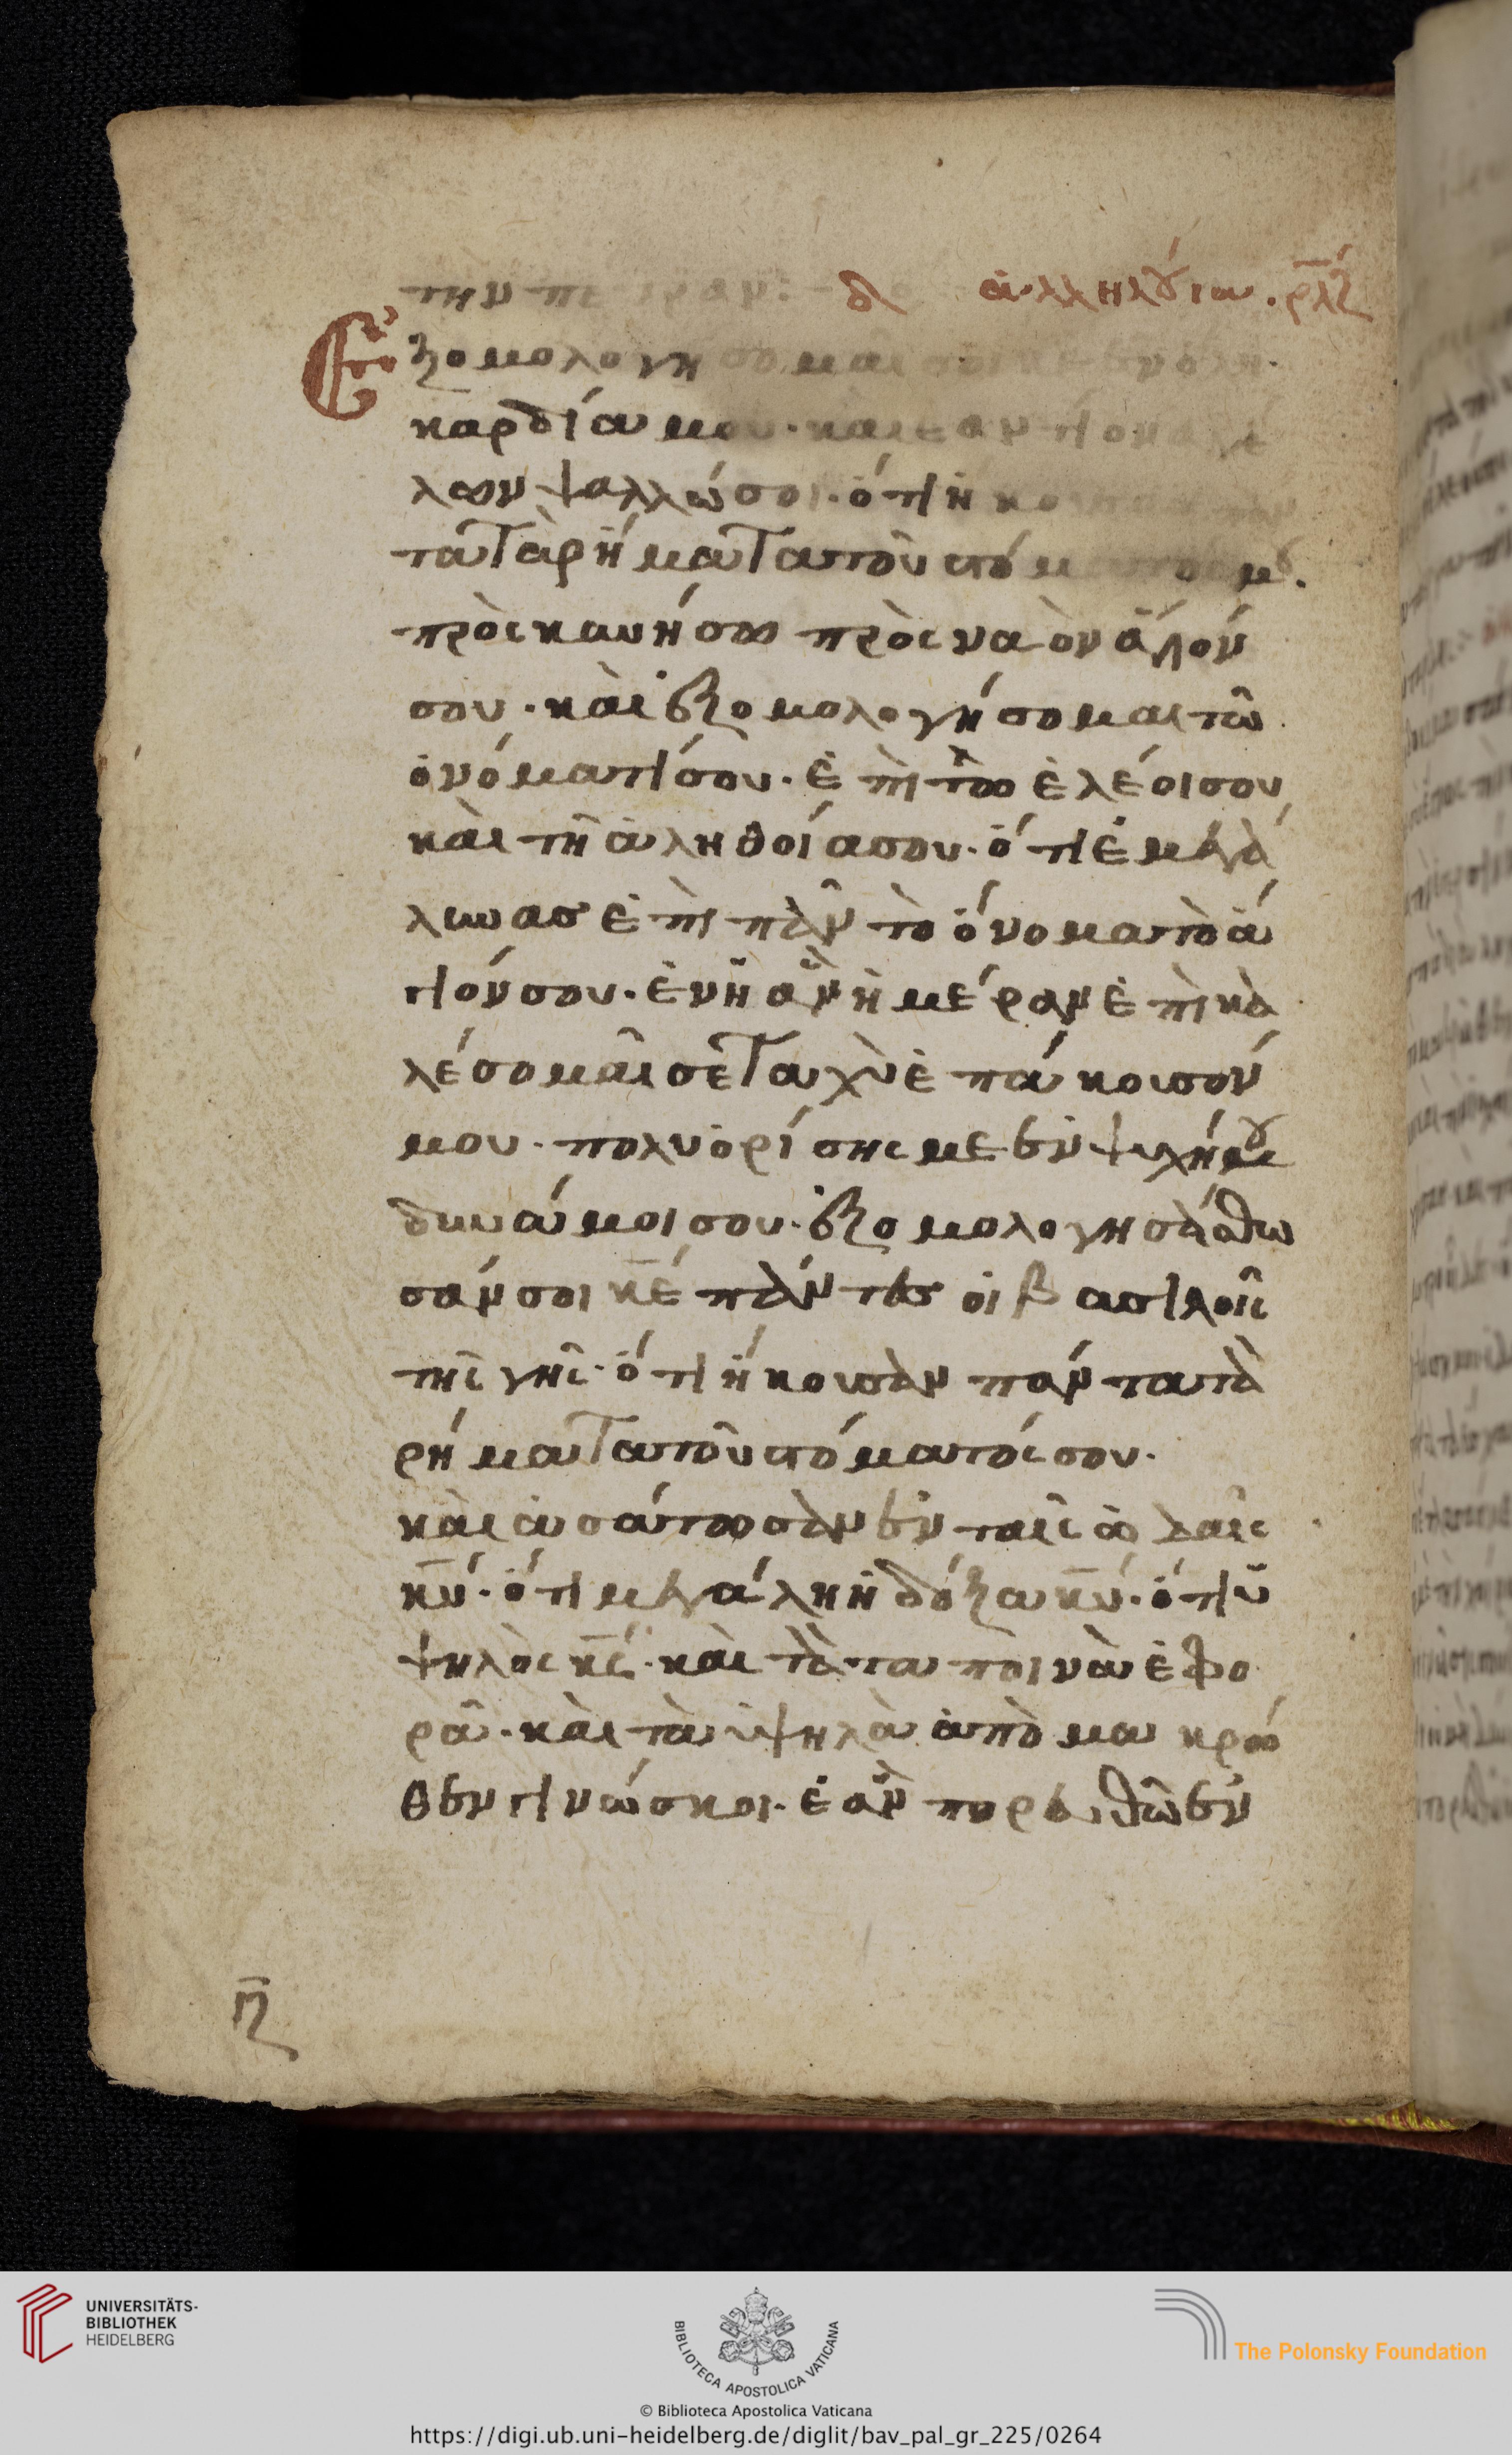 τὴν πέτραν: ἀλληλούϊα. ρλζ
Ἐξομολογήσομαί σοι κε ἐν ὅλη
καρδία μου. καὶ ἐναντίον ἀγγέ
λων ψαλλώ σοι. ὅτι ἠκουσας πάν
τα τὰ ρήματα τοῦ στόματός μου.
πρὸςκυνήσω πρὸς ναὸν ἅγιόν
σου. καὶ ἐξομολογήσομαι τῶ
ὀνόματί σου. ἐπὶ τῶ ἐλέει σου
καὶ τῆ ἀληθεία σου. ὅτι ἐμεγά
λυνας ἐπὶ πᾶν τὸ ὄνομα τὸ ἅ
γιόν σου. ἐν ἧ ἂν ἡμέραν ἐπικα
λέσομαι σὲ ταχὺ ἐπάκουσόν
μου. πολυὁρίσης με ἐν ψυχή μου
δυνάμει σου. ἐξομολογησάσθω
σάν σοι κέ πάντες οἱ βασιλεῖς
τῆς γῆς. ὅτι ἤκουσαν πάντα τὰ
ρήματα τοῦ στόματός σου.
καὶ ἀσάτωσαν ἐν ταῖς ὠδαῖς
κύ. ὅτι μεγάλη ἡ δόξα κύ. ὅτι ὑ
ψηλὸς κς. καὶ τὰ ταπεινὰ ἐφο
ρᾶ. καὶ τὰ ὑψηλὰ ἀπὸ μακρώ
θεν γινώσκει. ἐὰν πορευθῶ ἐν
UNIVERSITÄTS-
BIBLIOTHEK
HEIDELBERG
BIBLIOTECA APOSTOLICA VATICANA
The Polonsky Foundation
© Biblioteca Apostolica Vaticana
https://digi.ub.uni-heidelberg.de/diglit/bav_pal_gr_225/0264